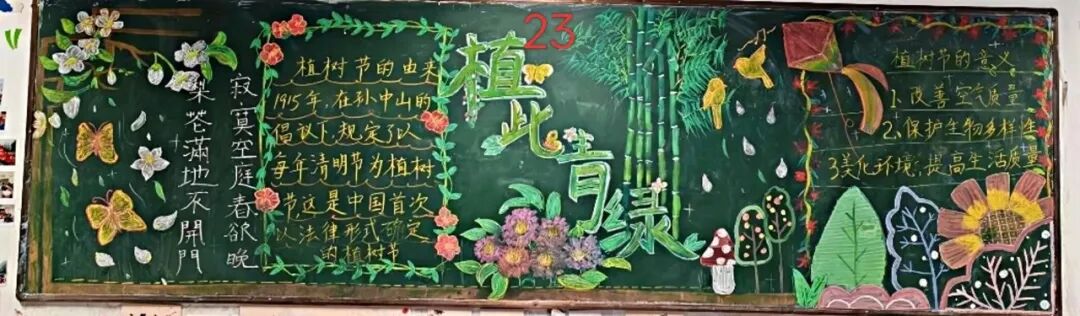 寂寞空庭春欲晚
梨花滿地不開門
植树节的由来
1915年,在孙中山的
倡议下,规定了以
每年清明节为植树
节,这是中国首次
以法律形式确定
的植树节
23
植此青绿
植树节的意义
1、改善空气质量
2、保护生物多样性
3美化环境,提高生活质量